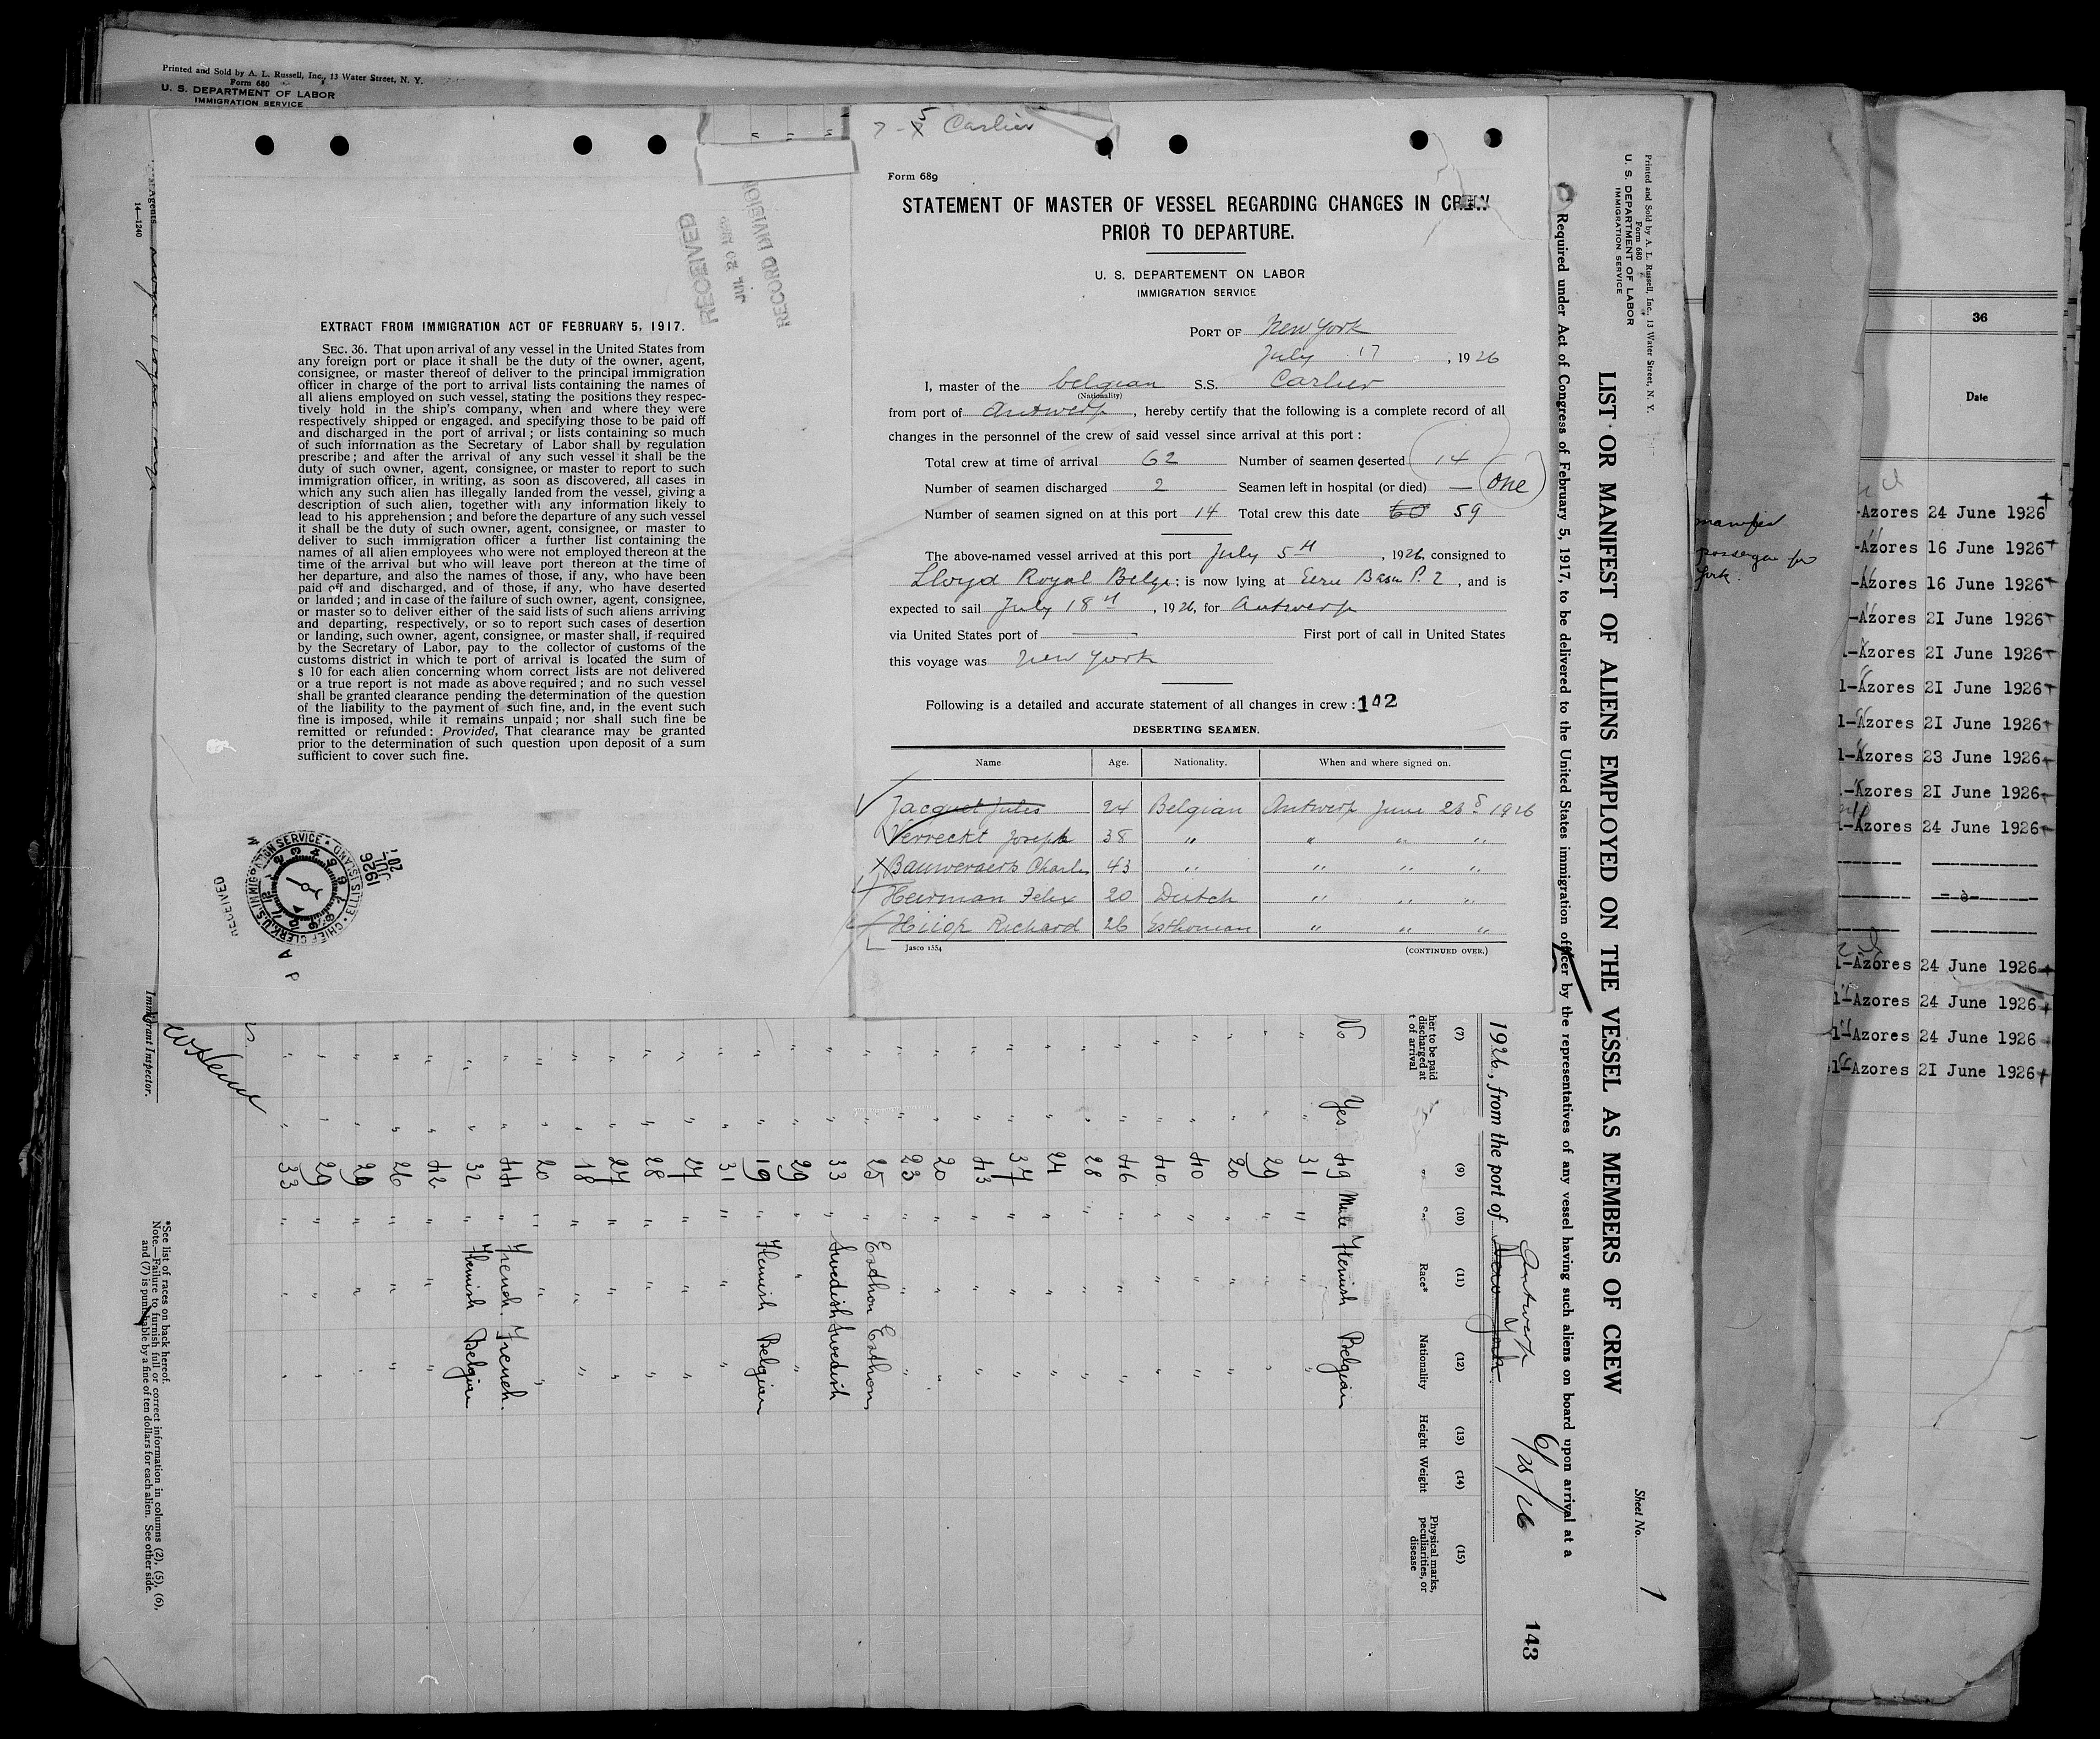 Printed and Sold by A. L. Russell, Inc., 13 Water Street, N. Y.
Form 680
U. S. DEPARTMENT OF LABOR
IMMIGRATION SERVICE
14—1240
RECEIVED
JUL 20 1926
RECORD DIVISION
EXTRACT FROM IMMIGRATION ACT OF FEBRUARY 5, 1917.
SEC. 36. That upon arrival of any vessel in the United States from
any foreign port or place it shall be the duty of the owner, agent,
consignee, or master thereof to deliver to the principal immigration
officer in charge of the port to arrival lists containing the names of
all aliens employed on such vessel, stating the positions they respec-
tively hold in the ship's company, when and where they were
respectively shipped or engaged, and specifying those to be paid off
and discharged in the port of arrival ; or lists containing so much
of such information as the Secretary of Labor shall by regulation
prescribe ; and after the arrival of any such vessel it shall be the
duty of such owner, agent, consignee, or master to report to such
immigration officer, in writing, as soon as discovered, all cases in
which any such alien has illegally landed from the vessel, giving a
description of such alien, together with any information likely to
lead to his apprehension ; and before the departure of any such vessel
it shall be the duty of such owner, agent, consignee, or master to
deliver to such immigration officer a further list containing the
names of all alien employees who were not employed thereon at the
time of the arrival but who will leave port thereon at the time of
her departure, and also the names of those, if any, who have been
paid off and discharged, and of those, if any, who have deserted
or landed ; and in case of the failure of such owner, agent, consignee,
or master so to deliver either of the said lists of such aliens arriving
and departing, respectively, or so to report such cases of desertion
or landing, such owner, agent, consignee, or master shall, if required
by the Secretary of Labor, pay to the collector of customs of the
customs district in which te port of arrival is located the sum of
$ 10 for each alien concerning whom correct lists are not delivered
or a true report is not made as above required ; and no such vessel
shall be granted clearance pending the determination of the question
of the liability to the payment of such fine, and, in the event such
fine is imposed, while it remains unpaid ; nor shall such fine be
remitted or refunded : Provided, That clearance may be granted
prior to the determination of such question upon deposit of a sum
sufficient to cover such fine.
RECEIVED
CHIEF CLERK, U.S. IMMIGRATION SERVICE · ELLIS ISLAND
JUL 20 1926
7-5 Carlier
Form 689
STATEMENT OF MASTER OF VESSEL REGARDING CHANGES IN CREW
PRIOR TO DEPARTURE.
U. S. DEPARTEMENT ON LABOR
IMMIGRATION SERVICE
PORT OF New York
July 17 , 1926
I, master of the belgian S.S. Carlier
(Nationality)
from port of Antwerp , hereby certify that the following is a complete record of all
changes in the personnel of the crew of said vessel since arrival at this port :
Total crew at time of arrival 62 Number of seamen deserted 14
Number of seamen discharged 2 Seamen left in hospital (or died) — (one)
Number of seamen signed on at this port 14 Total crew this date 60 59
The above-named vessel arrived at this port July 5th , 1926, consigned to
Lloyd Royal Belge ; is now lying at Erie Basin P. 2 , and is
expected to sail July 18th , 1926, for Antwerp
via United States port of —— First port of call in United States
this voyage was New York
Following is a detailed and accurate statement of all changes in crew : 142
DESERTING SEAMEN.
Name Age. Nationality. When and where signed on.
Jacquet Jules 24 Belgian Antwerp June 23d 1926
Verreckt Joseph 38 " " " "
Bauweraerts Charles 43 " " " "
Heirman Felix 20 Dutch " " "
Hiiop Richard 26 Esthonian " " "
Jasco 1554 (CONTINUED OVER.)
Printed and Sold by A. L. Russell, Inc., 13 Water Street, N. Y.
Form 680
U. S. DEPARTMENT OF LABOR
IMMIGRATION SERVICE
LIST OR MANIFEST OF ALIENS EMPLOYED ON THE VESSEL AS MEMBERS OF CREW
Sheet No. 1
Required under Act of Congress of February 5, 1917, to be delivered to the United States immigration officer by the representatives of any vessel having such aliens on board upon arrival at a
1926, from the port of New York Antwerp 6/25/26
143
(7) (9) (10) (11) (12) (13) (14) (15)
her to be paid
discharged at
t of arrival
Race* Nationality Height Weight
Physical marks,
peculiarities, or
disease
No Yes 49 Male Flemish Belgian
" " 31 " " "
" " 29 " " "
" " 20 " " "
" " 40 " " "
" " 40 " " "
" " 46 " " "
" " 28 " " "
" " 24 " " "
" " 37 " " "
" " 43 " " "
" " 20 " " "
" " 23 " " "
" " 25 " Esthon Esthon
" " 33 " Swedish Swedish
" " 29 " " "
" " 19 " Flemish Belgian
" " 31 " " "
" " 27 " " "
" " 28 " " "
" " 27 " " "
" " 18 " " "
" " 20 " " "
" " 44 " French French.
" " 32 " Flemish Belgian
" " 42 " " "
" " 26 " " "
" " 29 " " "
" " 29 " " "
" " 33 " " "
Immigrant Inspector.
*See list of races on back hereof.
Note.—Failure to furnish full or correct information in columns (2), (5), (6),
and (7) is punishable by a fine of ten dollars for each alien. See other side.
manifest
passenger for
York.
36
Date
-Azores 24 June 1926
-Azores 16 June 1926
-Azores 16 June 1926
-Azores 2I June 1926
-Azores 2I June 1926
1-Azores 2I June 1926
1-Azores 2I June 1926
1-Azores 23 June 1926
-Azores 2I June 1926
1-Azores 24 June 1926
1-Azores 24 June 1926
1-Azores 24 June 1926
1-Azores 24 June 1926
1-Azores 2I June 1926